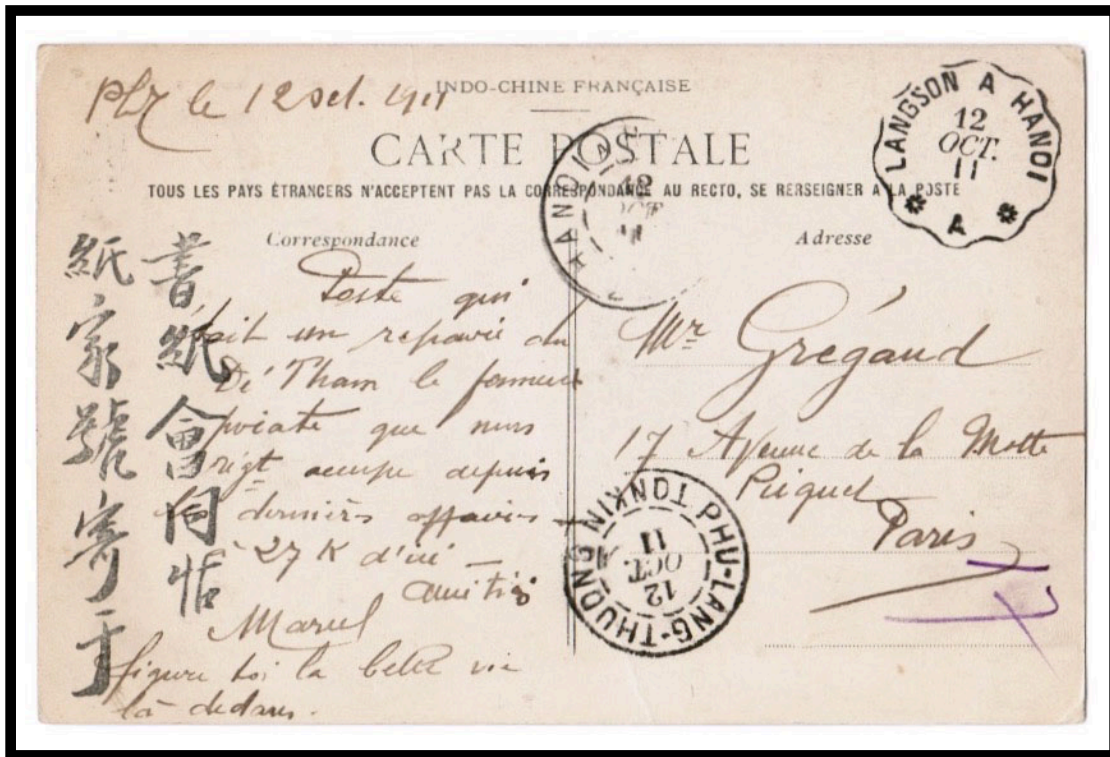 PLT le 12 Oct. 1911
INDO-CHINE FRANÇAISE
CARTE POSTALE
TOUS LES PAYS ÉTRANGERS N'ACCEPTENT PAS LA CORRESPONDANCE AU RECTO, SE RERSEIGNER A LA POSTE
LANGSON A HANOI
12
OCT.
11
A
HANOI
12
OCT
Correspondance
Poste qui
était un repavie du
Dé Tham le fameux
piate que nous
occupe depuis
les dernières affaires
à 27 K d'ici —
Amitiés
Marcel
figure toi la belle vie
là dedans.
書紙會同
紙家號寄于
Adresse
Mr Grégaud
17 Avenue de la Motte
Piquet
Paris
PHU-LANG-THUONG TONKIN
12
OCT.
11